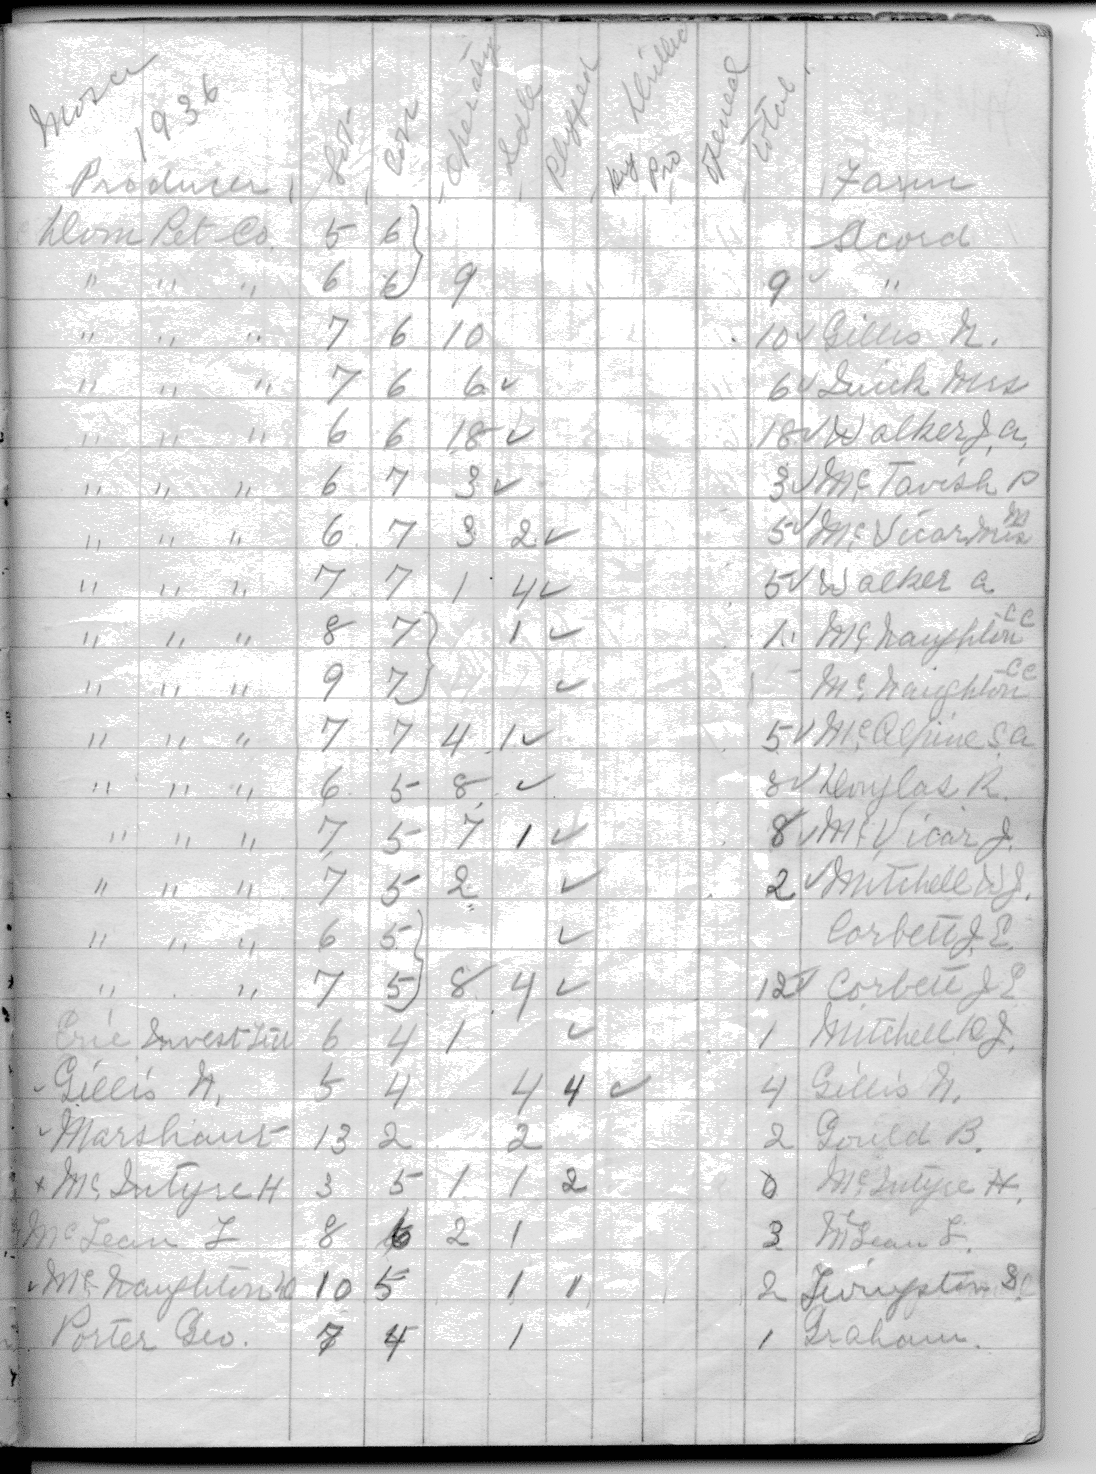 Mosa
1936
Producer Lot Con Operating Idle Plugged Dry Pro Drilled Total Farm
Dom Pet Co. 5 6 Acord
" " " 6 6 9 9 ✓ "
" " " 7 6 10 10 ✓ Gillis N.
" " " 7 6 6 ✓ 6 ✓ Quick Mrs
" " " 6 6 18 ✓ 18 ✓ Walker J. A.
" " " 6 7 3 ✓ 3 ✓ McTavish D
" " " 6 7 3 2 ✓ 5 ✓ McVicar Mrs M
" " " 7 7 1 4 ✓ 5 ✓ Walker A
" " " 8 7 1 ✓ 1 McNaughton CC
" " " 9 7 ✓ McNaughton CC
" " " 7 7 4 1 ✓ 5 ✓ McAlpine S A
" " " 6 5 8 ✓ 8 ✓ Douglas R.
" " " 7 5 7 1 ✓ 8 ✓ McVicar J.
" " " 7 5 2 ✓ 2 ✓ Mitchell W J.
" " " 6 5 ✓ Corbett J. E.
" " 7 5 8 4 ✓ 12 ✓ Corbett J E
Erie Invest Ltd 6 4 1 ✓ 1 Mitchell D J.
✓ Gillis N. 5 4 4 4 ✓ 4 Gillis N.
✓ 13 2 2 2 Gould B.
x McIntyre H 3 5 1 1 2 0 McIntyre H.
McLean L 8 6 2 1 3 McLean L.
✓ McNaughton 10 5 1 1 2 Livingston D.
Porter Geo. 7 4 1 1 Graham.